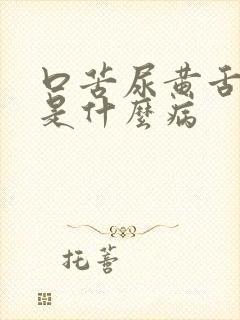 口苦尿黄舌
是什麼病
托著